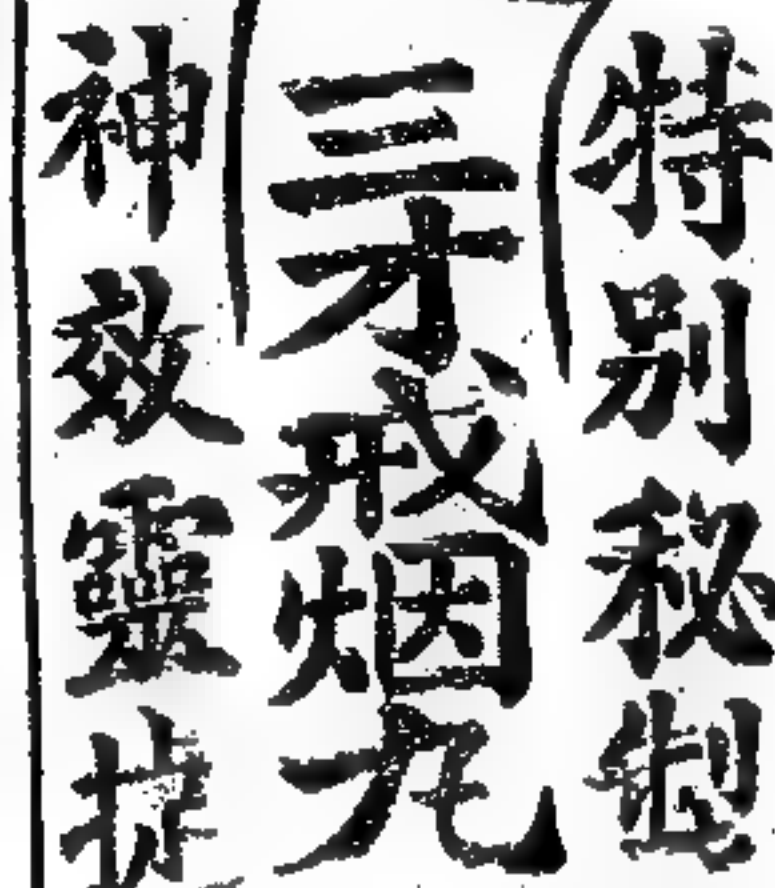 特別秘製
三才戒烟丸
神效靈捷